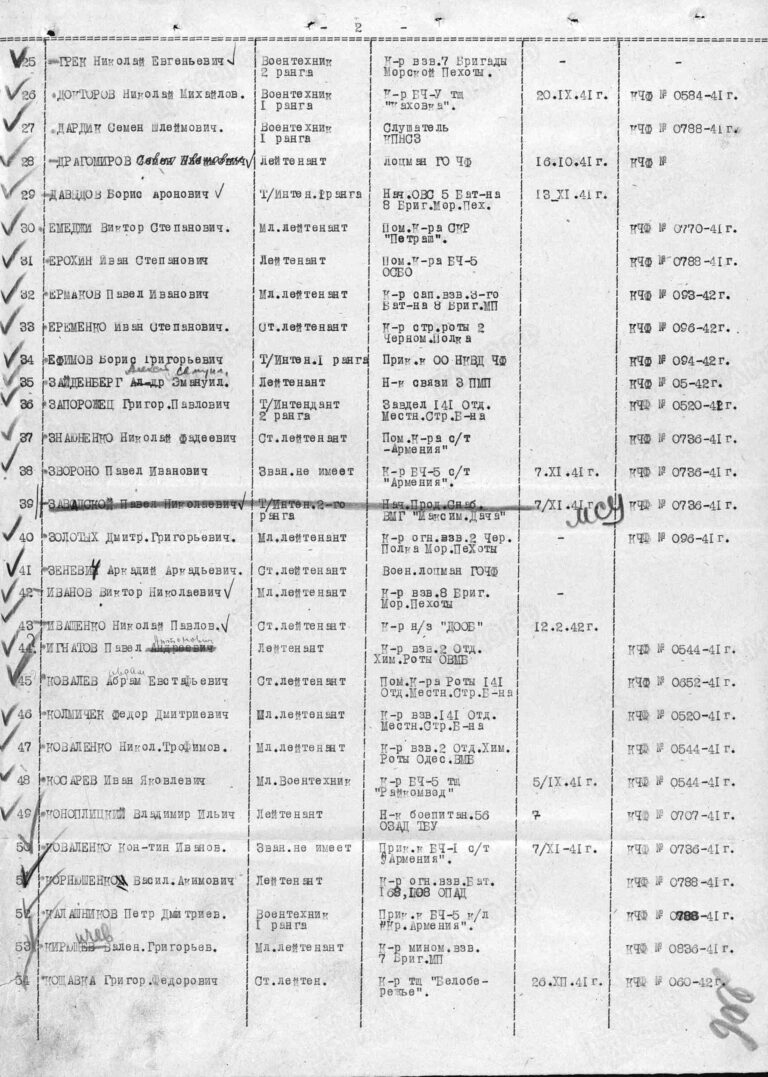 - 2 -
25 ГРЕК Николай Евгеньевич Воентехник К-р взв.7 Бригады - -
2 ранга Морской Пехоты.
26 ДОКТОРОВ Николай Михайлов. Воентехник К-р БЧ-У тщ 20.IX.41 г. КЧФ № 0584-41г.
I ранга "Каховка".
27 ДАРДИК Семен Шлеймович. Воентехник Слушатель КЧФ № 0788-41г.
I ранга КПНСЗ
28 ДРАГОМИРОВ лейтенант лоцман ГО ЧФ 16.10.41 г. КЧФ №
29 ДАВЫДОВ Борис Аронович Т/Интен.1ранга Нач.ОВС 5 Бат-на 13_XI.41г.
8 Бриг.Мор.Пех.
30 ЕМЕДЖИ Виктор Степанович. Мл.лейтенант Пом.К-ра СКР КЧФ № 0770-41г.
"Петраш".
31 ЕРОХИН Иван Степанович Лейтенант Пом.К-ра БЧ-5 КЧФ № 0788-41г.
ОСБО
32 ЕРМАКОВ Павел Иванович Мл.лейтенант К-р сап.взв.3-го КЧФ № 093-42г.
Бат-на 8 Бриг.МП
33 ЕРЕМЕНКО Иван Степанович. Ст.лейтенант К-р стр.роты 2 КЧФ № 096-42г.
Черном.Полка
34 ЕФИМОВ Борис Григорьевич Т/Интен.I ранга Прик.к ОО НКВД ЧФ КЧФ № 094-42г.
35 ЗАЙДЕНБЕРГ Ал-др Эмануил. Лейтенант Н-к связи 3 ПМП КЧФ № 05-42г.
36 ЗАПОРОЖЕЦ Григор.Павлович Т/Интендант Завдел I4I Отд. КЧФ № 0520-41г.
2 ранга Местн.Стр.Б-на
37 ЗНАЮНЕНКО Николай Фадеевич Ст.лейтенант Пом.К-ра с/т КЧФ № 0736-41г.
-Армения"
38 ЗВОРОНО Павел Иванович Зван.не имеет К-р БЧ-5 с/т 7.XI.41г. КЧФ № 0736-41г.
"Армения".
39 ЗАВАДСКОЙ Павел Николаевич Т/Интен.2-го Нач.Прод.Снаб. 7/XI.41г. КЧФ № 0736-41г.
ранга ВМГ "Максим.Дача" МСУ
40 ЗОЛОТЫХ Дмитр.Григорьевич. Мл.лейтенант К-р огн.взв.2 Чер. - КЧФ № 096-41г.
Полка Мор.ПеХоты
41 ЗЕНЕВИЧ Аркадий Аркадьевич. Ст.лейтенант Воен.лоцман ГОЧФ
42 ИВАНОВ Виктор Николаевич Мл.лейтенант К-р взв.8 Бриг. -
Мор.Пехоты
43 ИВАШЕНКО Николай Павлов. Ст.лейтенант К-р н/з "ДООБ" 12.2.42г.
44 ИГНАТОВ Павел Андреевич Лейтенант К-р взв.2 Отд. КЧФ № 0544-41г.
Антонович
Хим.Роты ОВМБ
45 КОВАЛЕВ Абрам Евстафьевич Ст.лейтенант Пом.К-ра Роты I4I КЧФ № 0652-41г.
Отд.Местн.Стр.Б-на
46 КОЛМИЧЕК Федор Дмитриевич Мл.лейтенант К-р взв.I4I Отд. КЧФ № 0520-41г.
Местн.Стр.Б-на
47 КОВАЛЕНКО Никол.Трофимов. Мл.лейтенант К-р взв.2 Отд.Хим. КЧФ № 0544-41г.
Роты Одес.ВМБ
48 КОСАРЕВ Иван Яковлевич Мл.Воентехник К-р БЧ-5 тщ 5/IX.41г. КЧФ № 0544-41г.
"Райкомвод"
49 КОНОПЛИЦКИЙ Владимир Ильич Лейтенант Н-к боепитан.56 7 КЧФ № 0707-41г.
ОЗАД ТБУ
50 КОВАЛЕНКО Кон-тин Иванов. Зван.не имеет Прик.к БЧ-I с/т 7/XI-41г. КЧФ № 0736-41г.
"Армения".
51 КОРНЮШЕНКО Васил.Акимович Лейтенант К-р огн.взв.Бат. КЧФ № 0788-41г.
ОПАД
52 КАЛАШНИКОВ Петр Дмитриев. Воентехник Прик.к БЧ-5 к/л КЧФ № 0788-41г.
I ранга "Кр.Армения".
53 КИРЮШЕВ Вален.Григорьев. Мл.лейтенант К-р мином.взв. КЧФ № 0836-41г.
7 Бриг.МП
54 КОЩАВКА Григор.Федорович Ст.лейтен. К-р тщ "Белобе- 26.XII.41г. КЧФ № 060-42г.
режье".